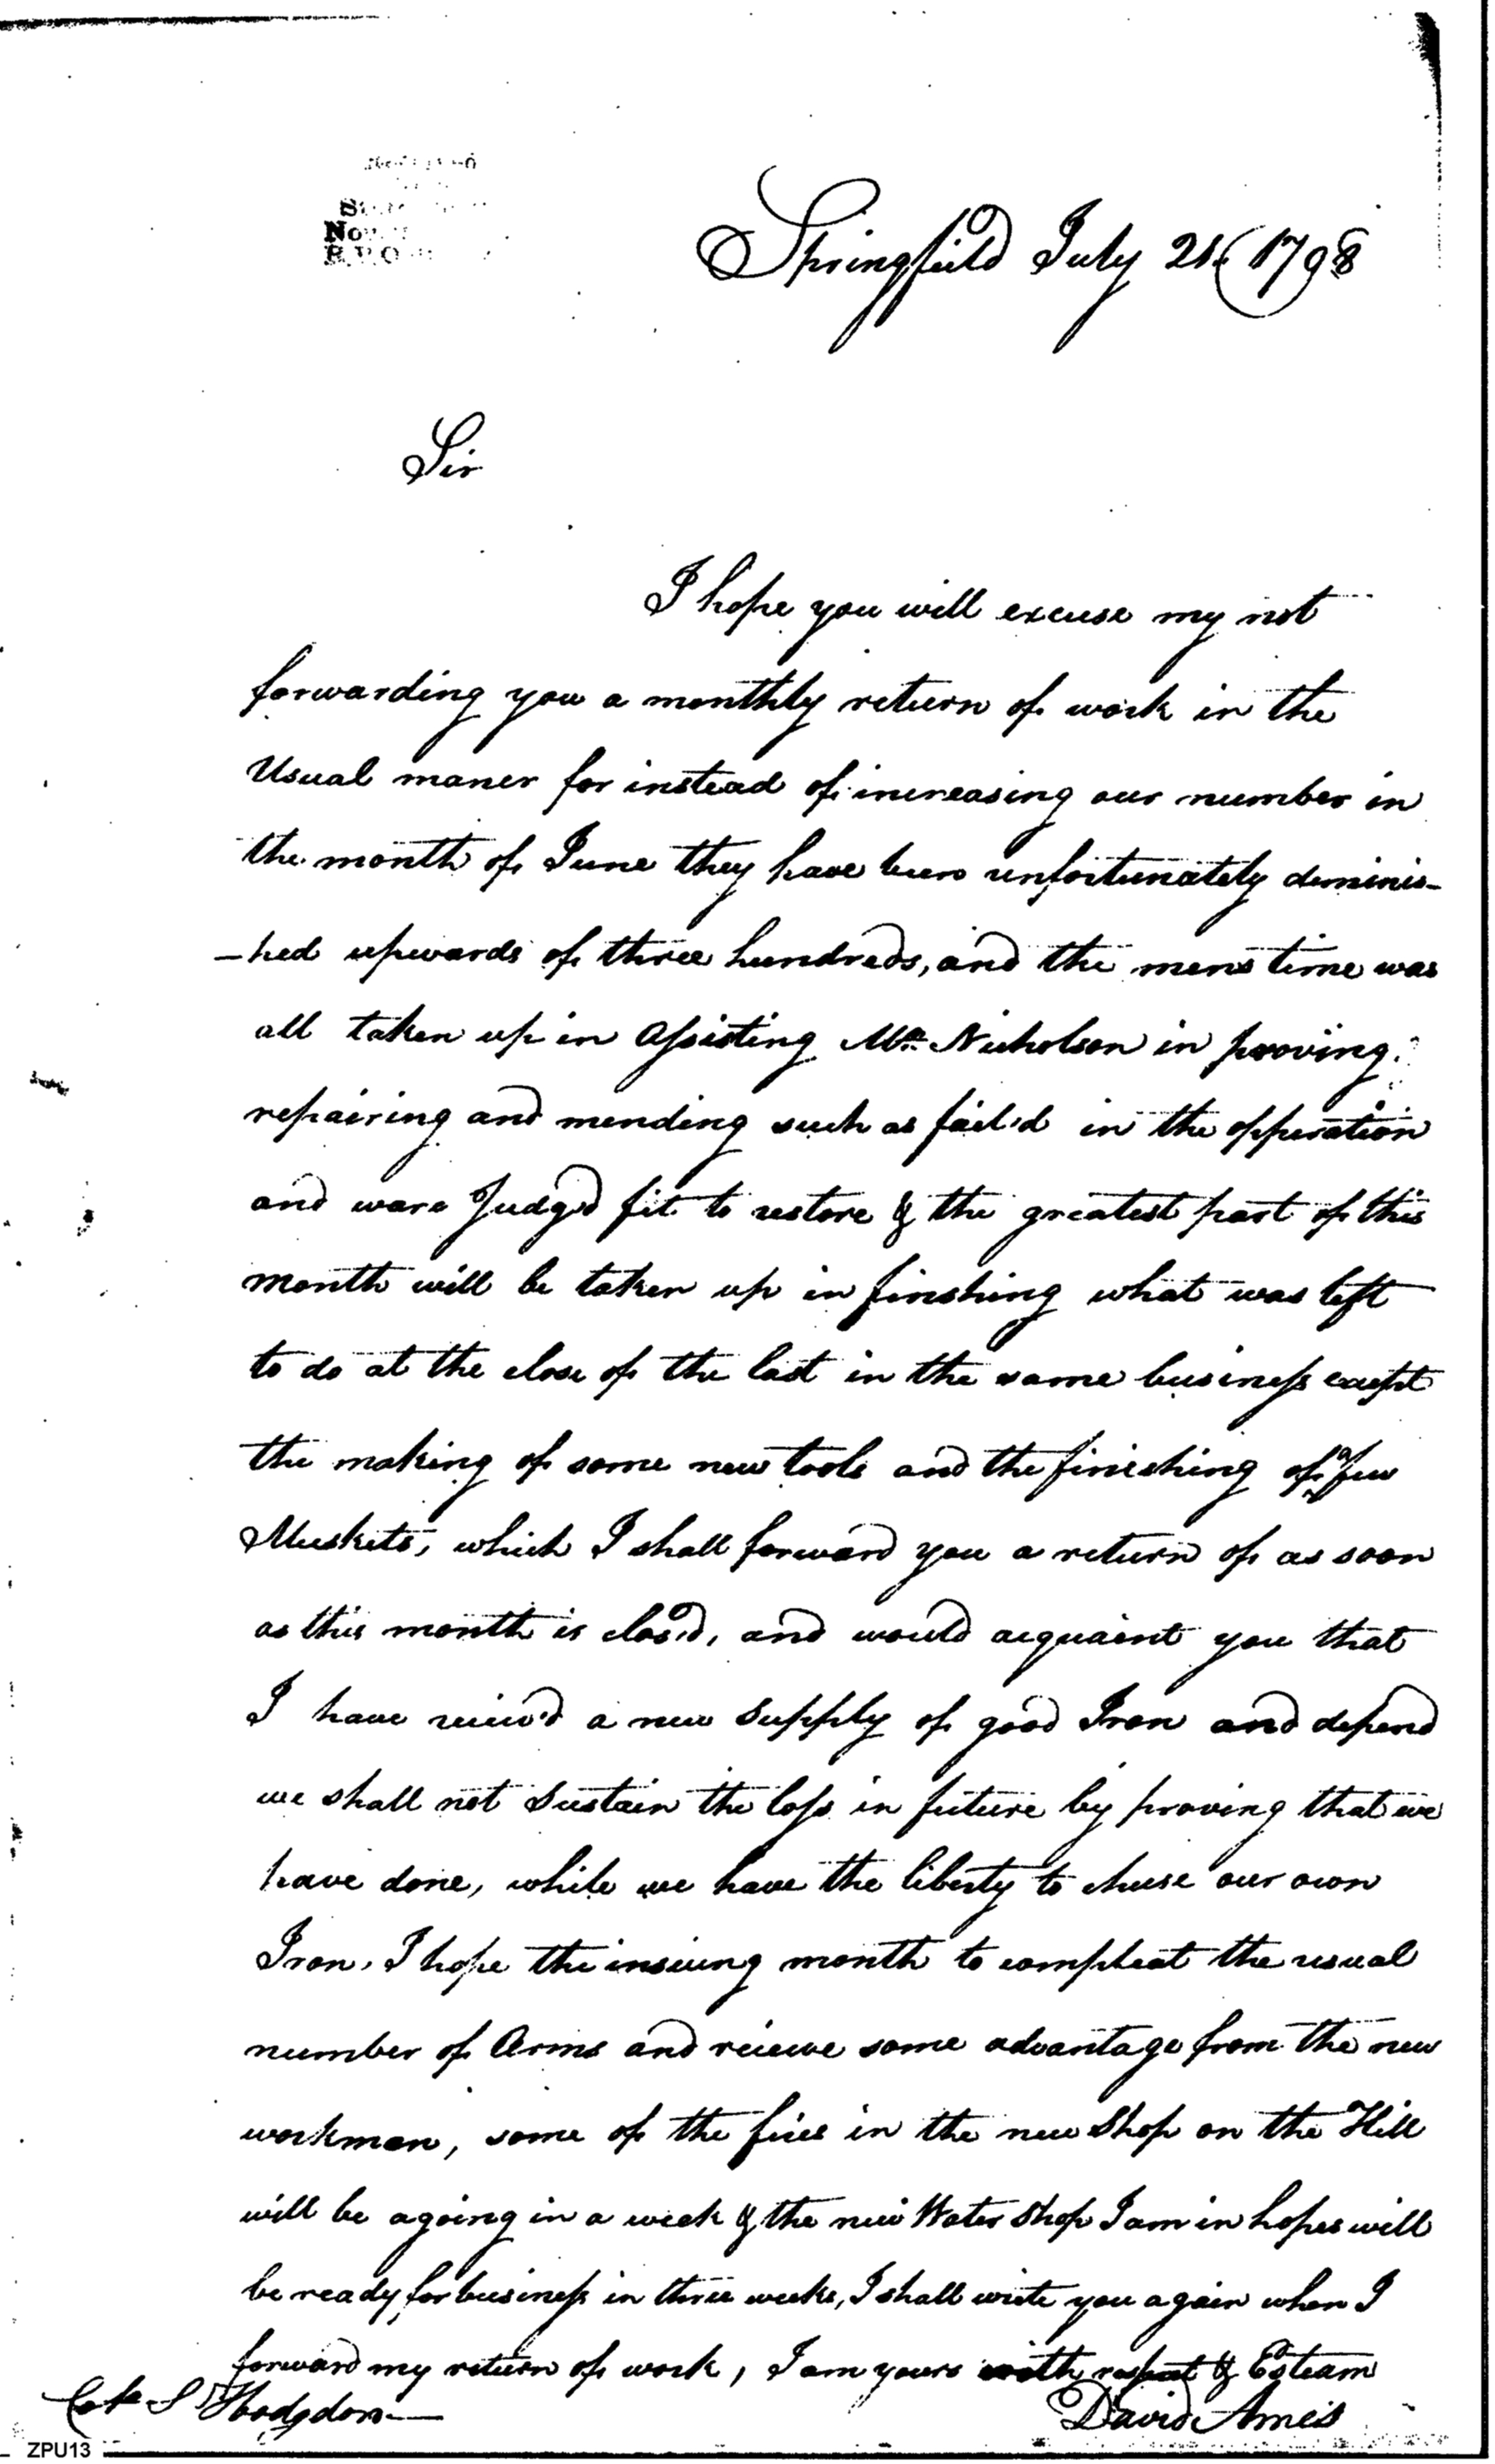 Springfield July 21. 1798
Sir
I hope you will excuse my not
forwarding you a monthly return of work in the
Usual maner for instead of increasing our number in
the month of June they have been unfortunately deminis-
-hed upwards of three hundreds, and the mens time was
all taken up in Assisting Mr. Nicholson in prooving.
repairing and mending such as fail'd in the opperation
and ware Judg'd fit to restore & the greatest part of this
month will be taken up in finshing what was left
to do at the close of the last in the same business except
the making of some new tools and the finishing of a few
Muskets, which I shall forward you a return of as soon
as this month is clos'd, and would acquaint you that
I have reciev'd a new Supply of good Iron and depend
we shall not Sustain the loss in future by proving that we
have done, while we have the liberty to chuse our own
Iron. I hope the insuing month to compleat the usual
number of Arms and recieve some advantage from the new
workmen, some of the fires in the new Shop on the Hill
will be agoing in a week & the new Water Shop I am in hopes will
be ready for business in three weeks, I shall write you again when I
forward my return of work, I am yours with respect & Esteam
S Hodgdon
David Ames
ZPU13